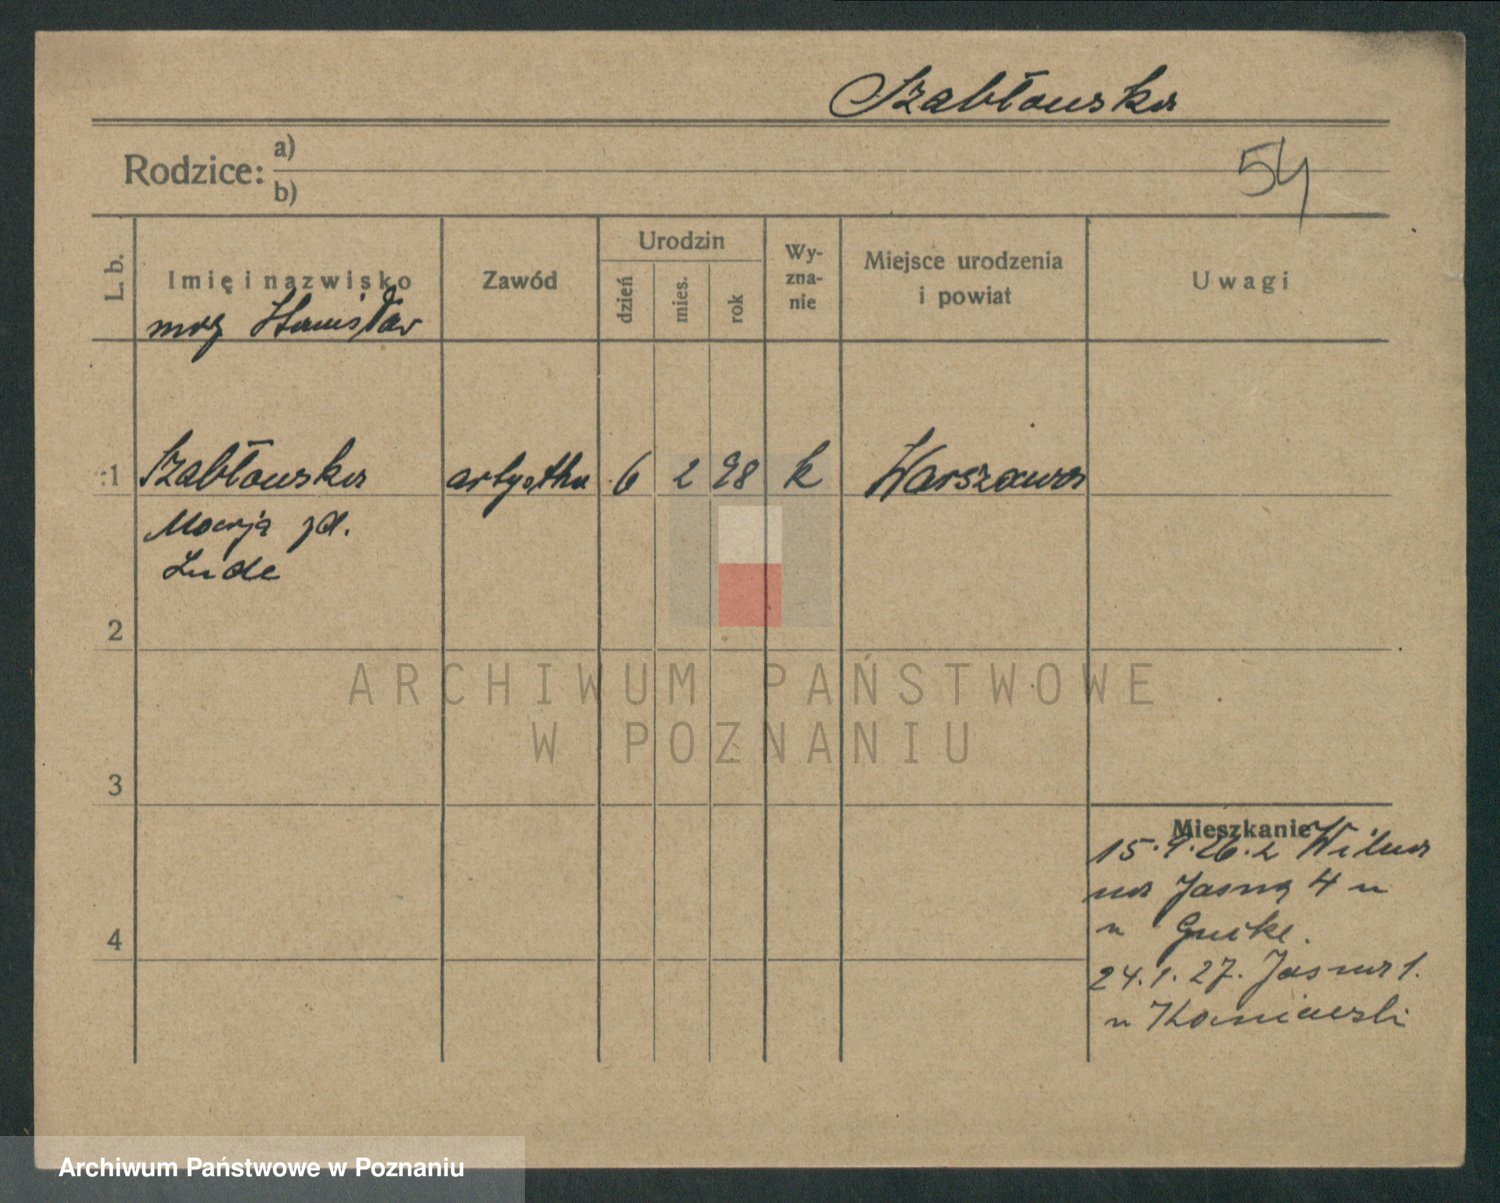 Szabłowska
Rodzice: a)
b)
54
L. b.
Imię i nazwisko
Zawód
Urodzin
dzień
mies.
rok
Wy-
zna-
nie
Miejsce urodzenia
i powiat
Uwagi
mąż Stanisław
1 Szabłowska artystka 6 2 98 k Warszawa
Marja zd.
Lude
2
3
4
Mieszkanie
15.9.26. z Wilna
na Jasną 4 m
u
24.1.27. Jasna 1.
u
ARCHIWUM PAŃSTWOWE
W POZNANIU
Archiwum Państwowe w Poznaniu